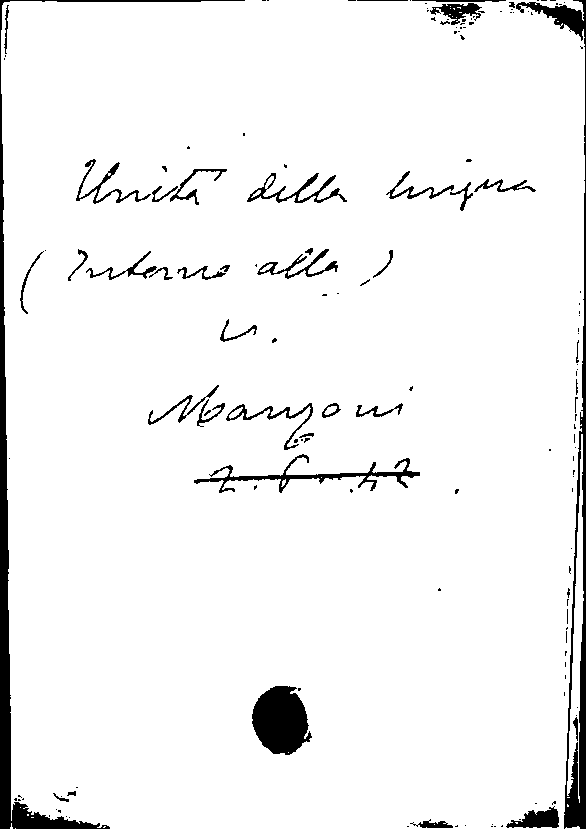 Unità della lingua
(Intorno alla)
v.
Manzoni
2.6..42.